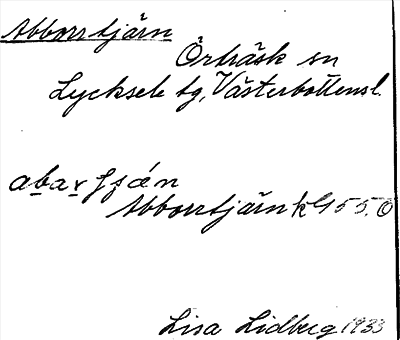 Abborrtjärn
Örträsk sn
Lycksele tg, Västerbottensl.
Abborrtjärn
Lisa Lidberg 1933